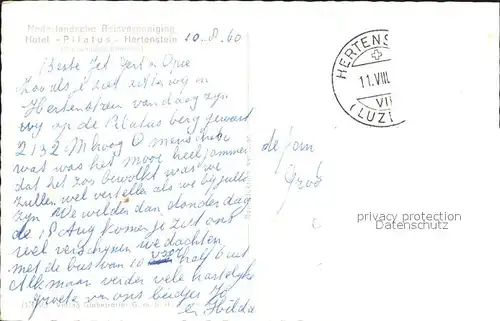 Nederlandsche Reisvereeniging
Hotel "Pilatus" Hertenstein
10.8.60
Beste Jet Gert en Opoe
Zooals je ziet zitten wij in
Hertenstein vandaag zijn
wij op de Pilatus berg geweest
2132 M hoog O menschen
wat was het mooi heel jammer
dat het zoo bewolkt was we
zullen wel vertellen als we bij jullie
zijn We wilden dan donderdag
de 18 Aug komen je ziet ons
wel verschijnen we dachten
met de bus van 10 voor half 6 uit
Alkmaar verder vele hartelijke
groeten van ons beidjes Jo
en Hilda
HERTENS
11.VIII
VII
(LUZE
de Jon
Groo
privacy protection
Datenschutz